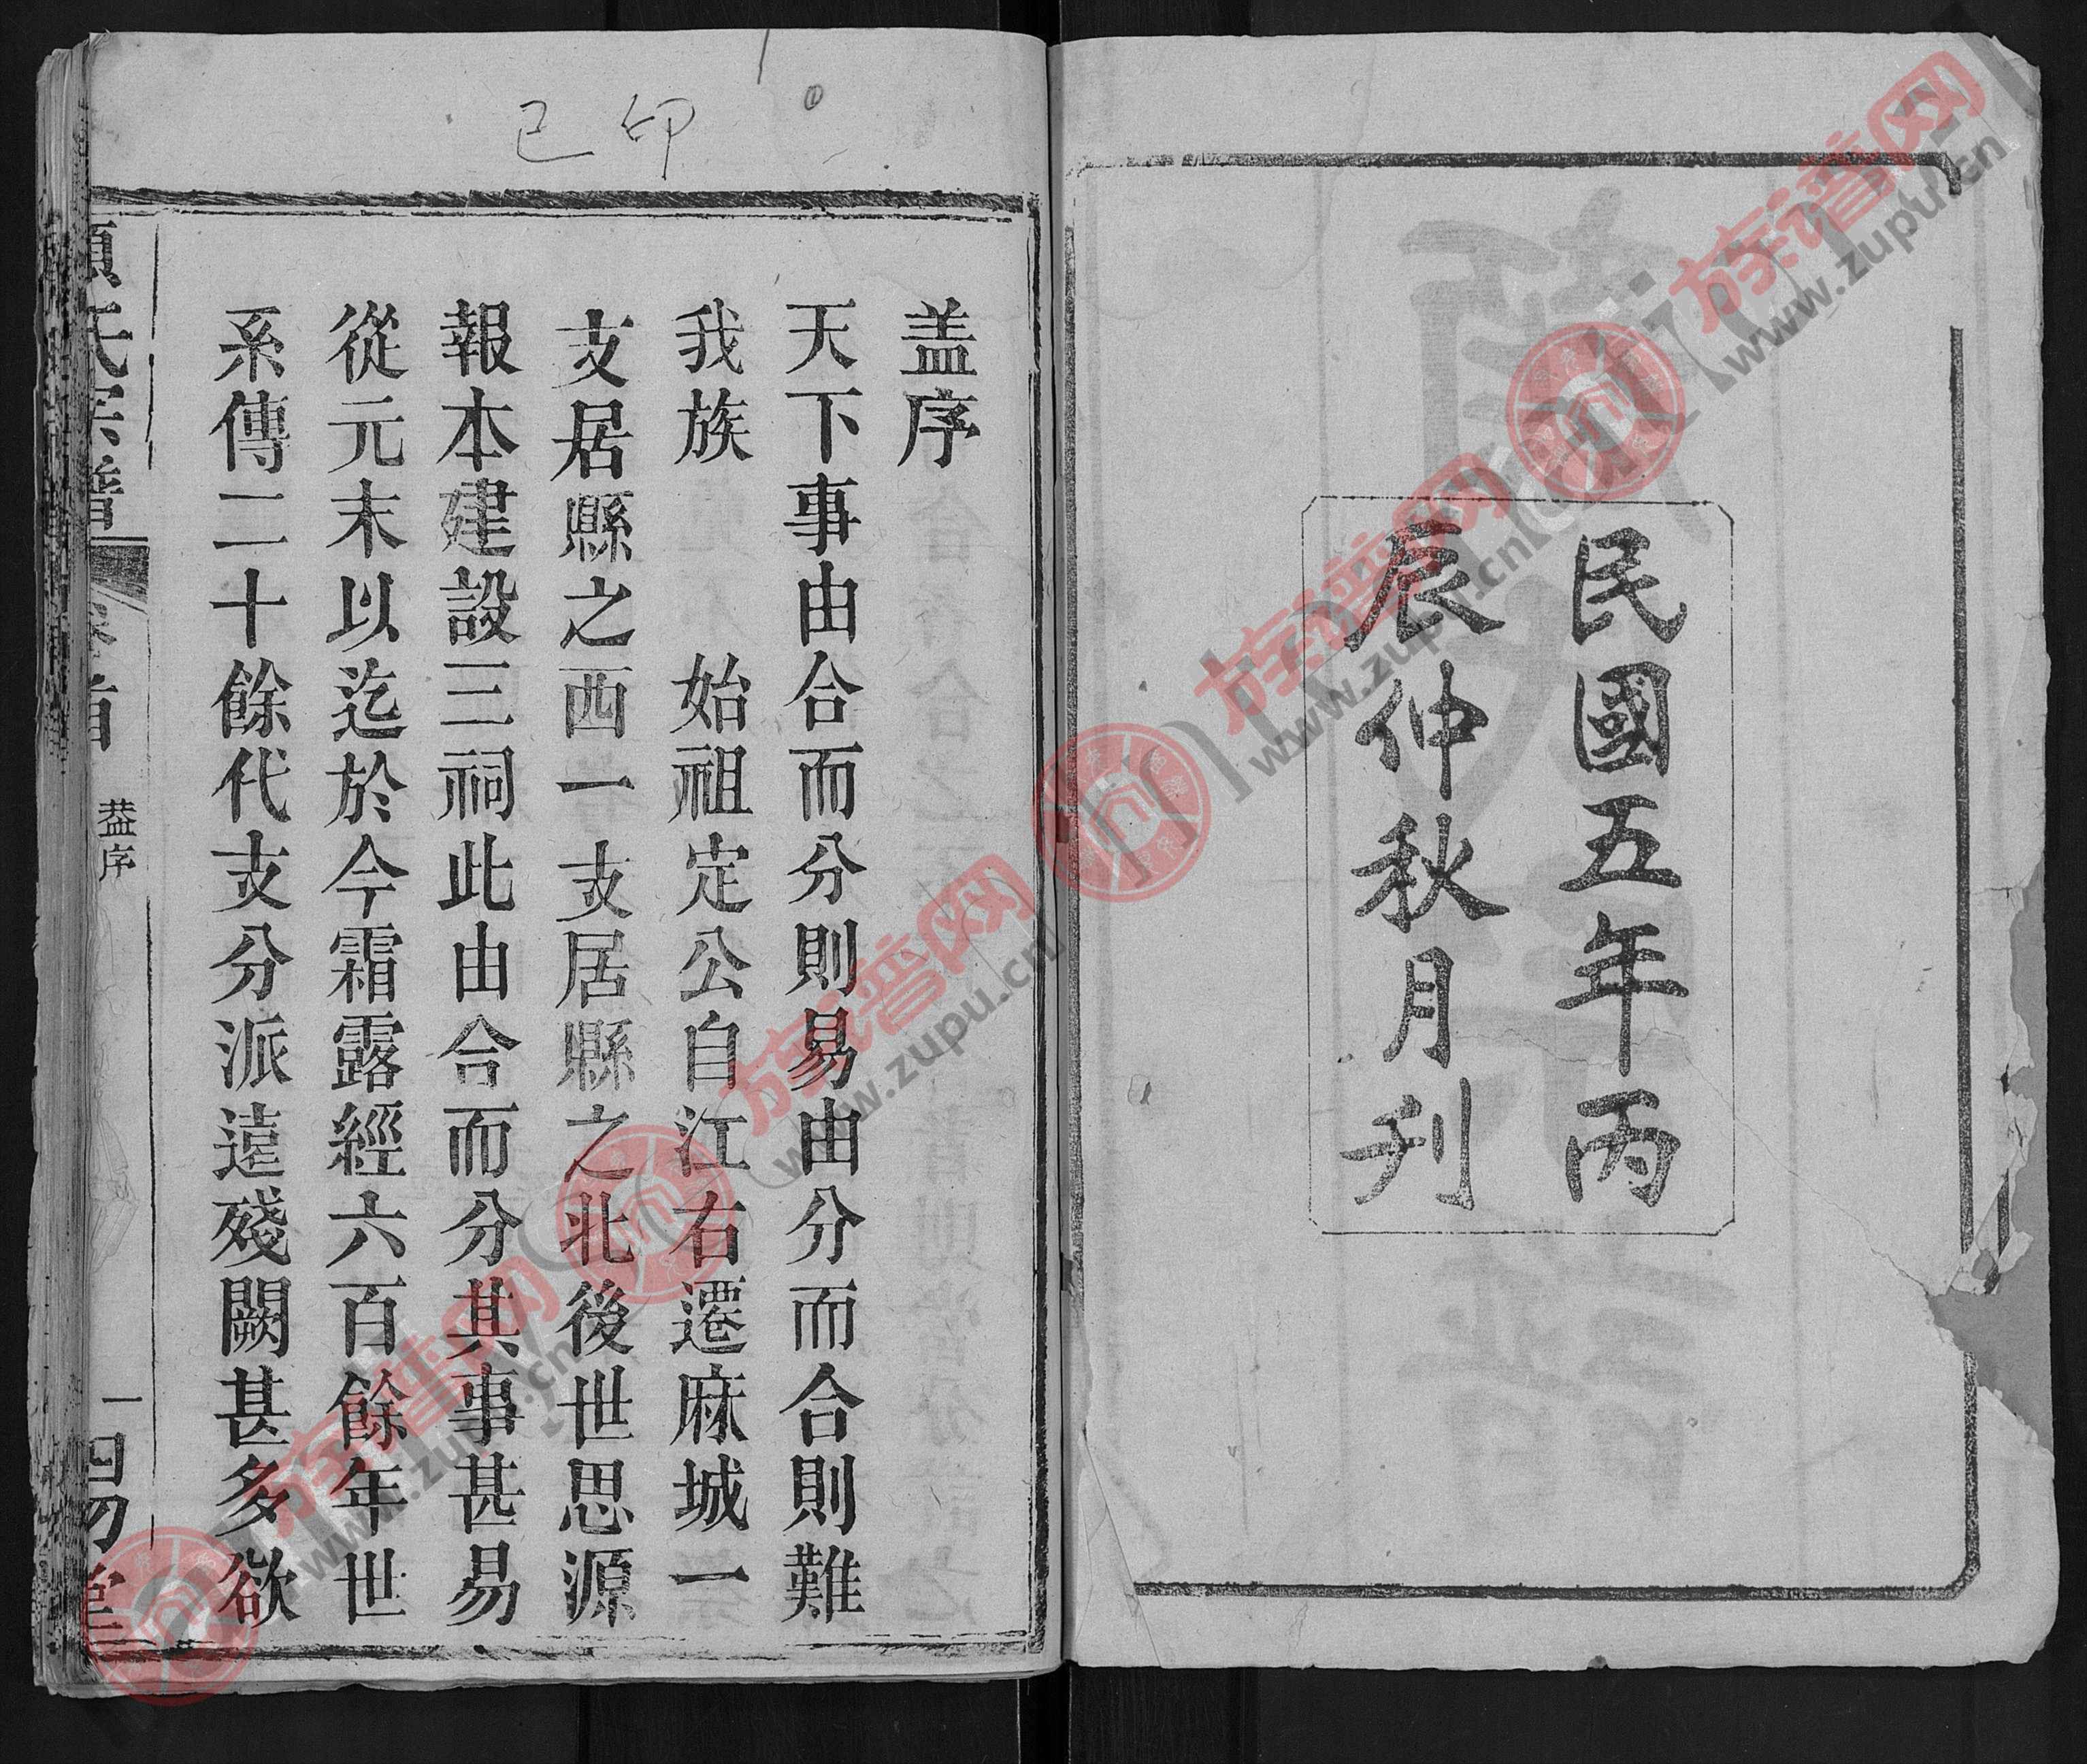 民國五年丙
辰仲秋月刊
已印
盖序
天下事由合而分則易由分而合則難
我族 始祖定公自江右遷麻城一
支居縣之西一支居縣之北後世思源
報本建設三祠此由合而分其事甚易
從元末以迄於今霜露經六百餘年世
系傳二十餘代支分派遠殘闕甚多欲
氏宗譜
卷首
盖序
一
堂
族谱网
www.zupu.cn
族谱网
www.zupu.cn
族谱网
www.zupu.cn
族谱网
www.zupu.cn